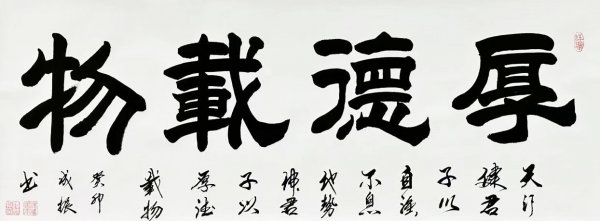 厚德載物
天行
健君
子以
自强
不息
地势
坤君
子以
厚德
載物
癸卯
书